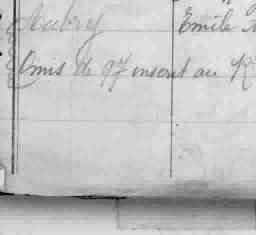 Aubry Emile
Omis de 97 inscrit au R